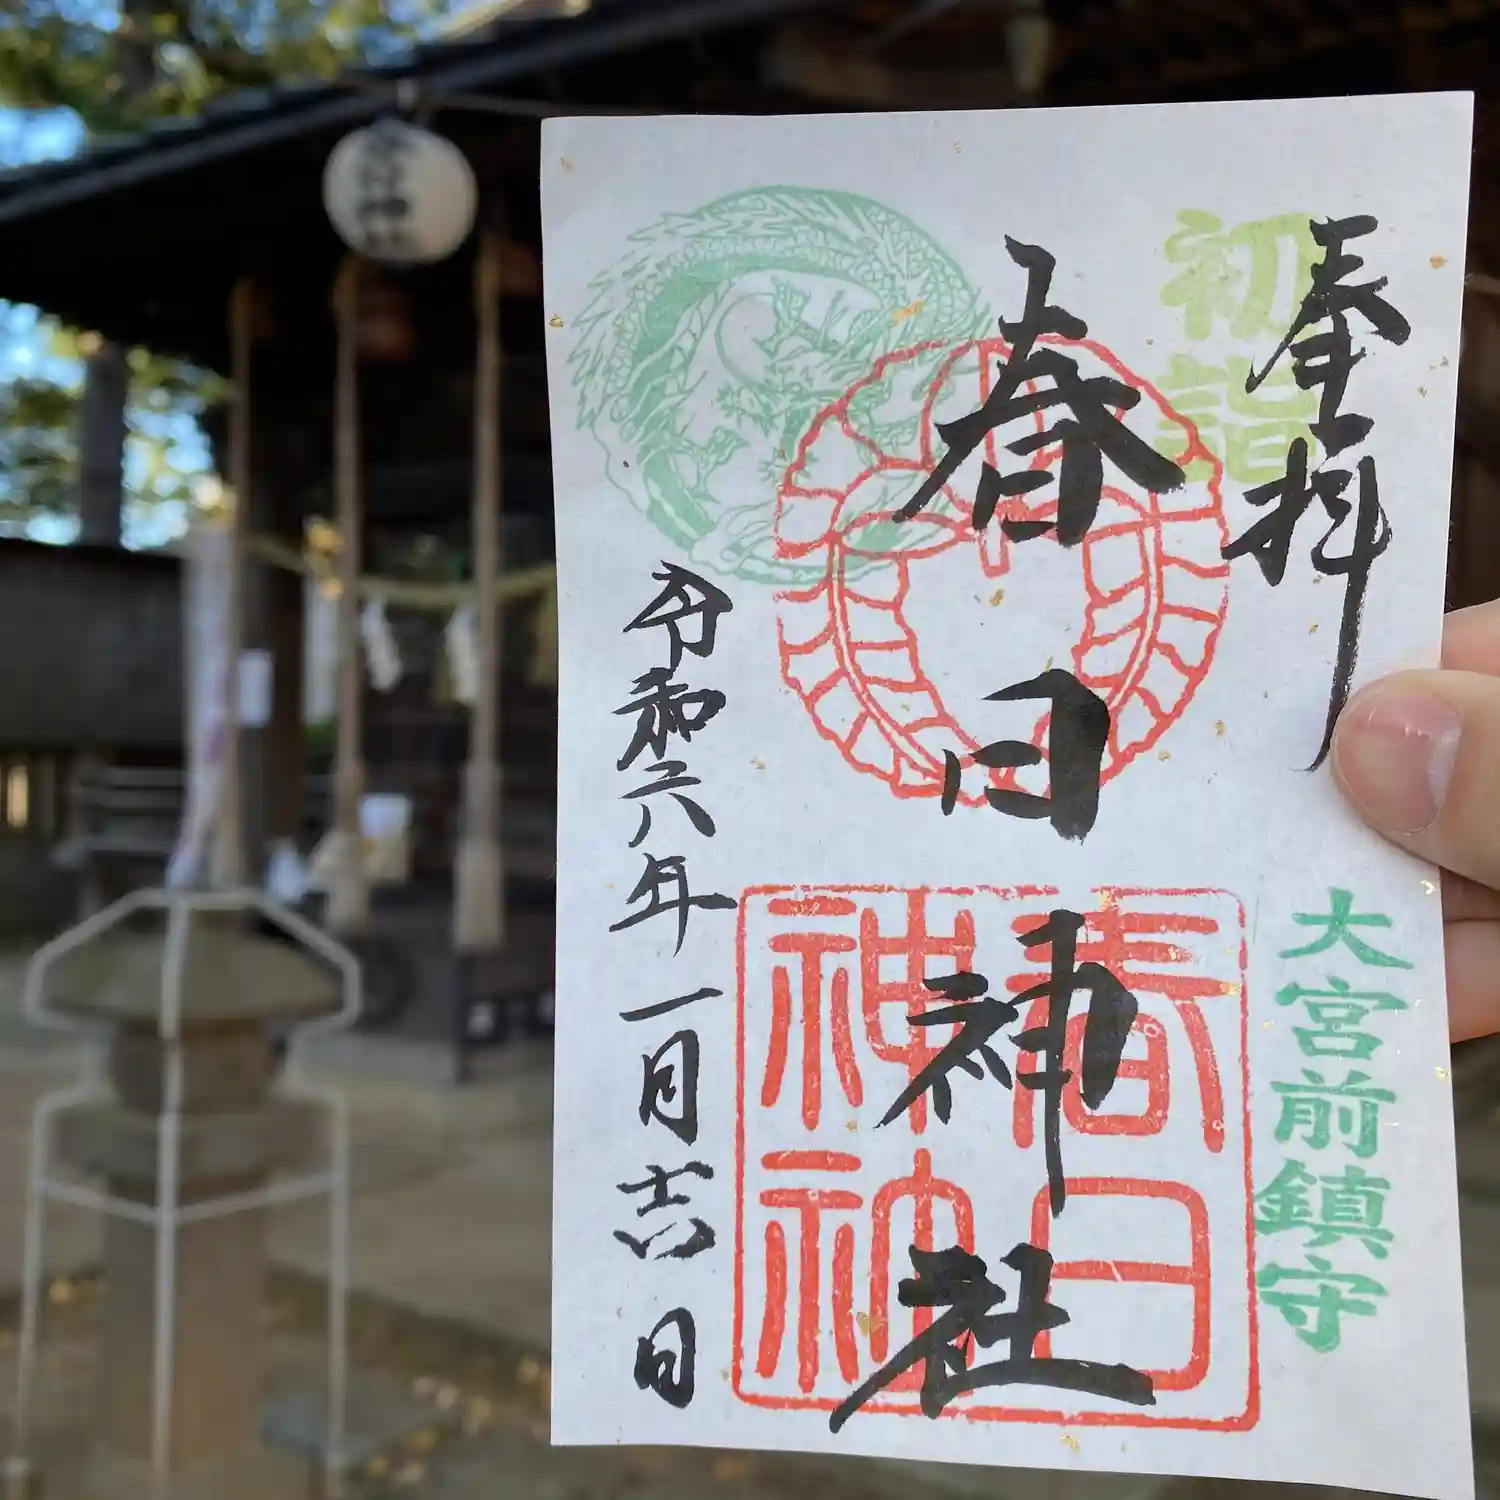 奉拝
初詣
春日神社
春日
神社
大宮前鎮守
令和六年一月吉日